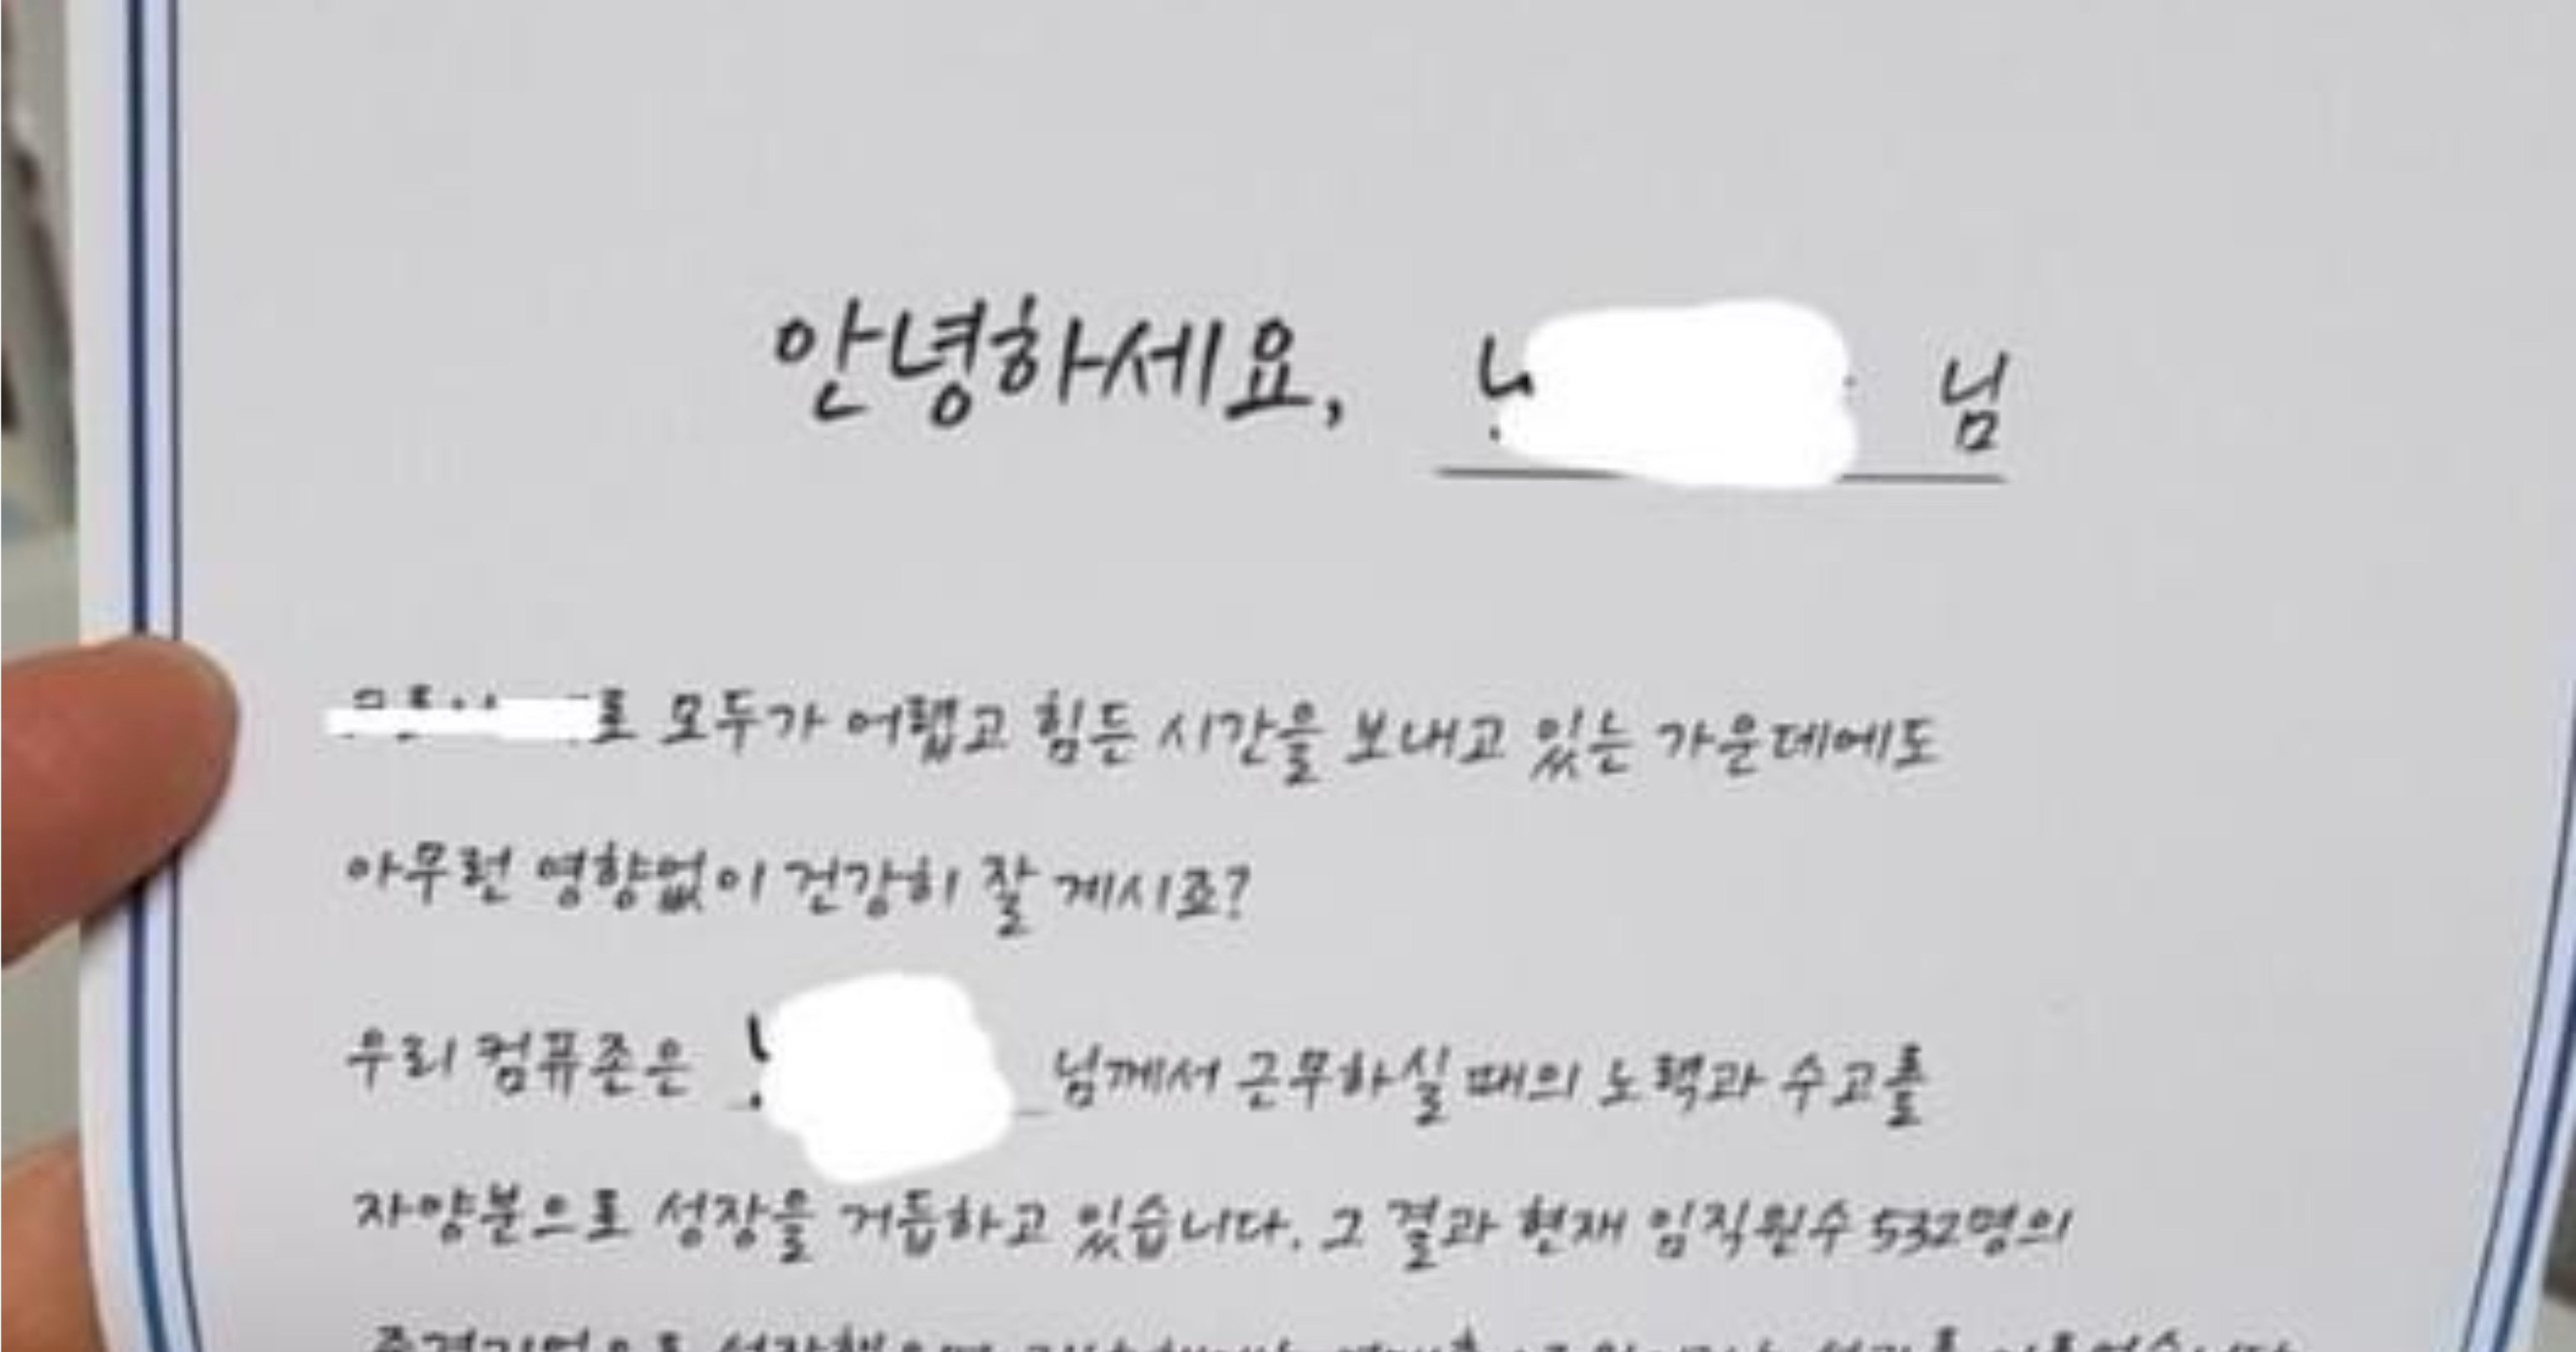 안녕하세요, 님
로 모두가 어렵고 힘든 시간을 보내고 있는 가운데에도
아무런 영향없이 건강히 잘 계시죠?
우리 컴퓨존은 님께서 근무하실 때의 노력과 수고를
자양분으로 성장을 거듭하고 있습니다. 그 결과 현재 임직원수 532명의